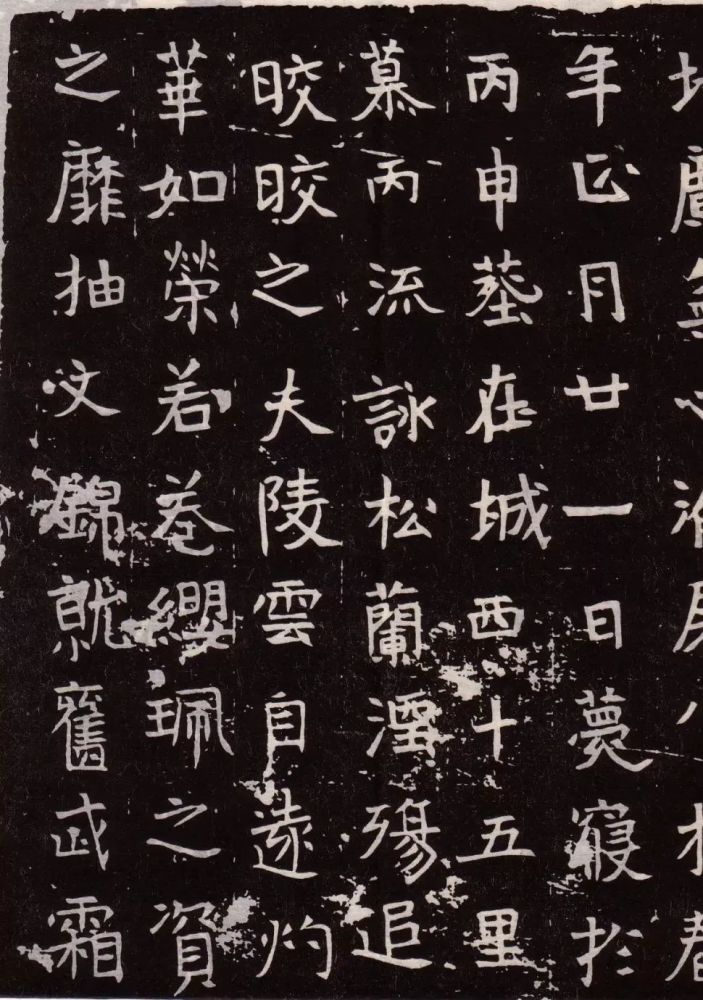 年正月廿一日薨寢於
丙申塟在城西十五里
慕丙流詠松蘭湮殤追
晈晈之夫陵雲自遠灼
華如榮若卷纓珮之資
之靡抽文錦就奮武霜